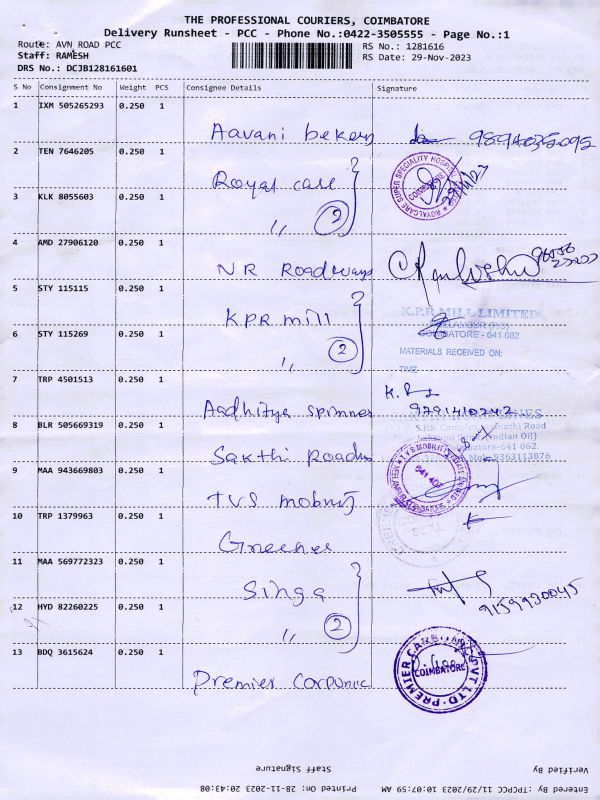 THE PROFESSIONAL COURIERS, COIMBATORE
Delivery Runsheet - PCC - Phone No.:0422-3505555 - Page No.:1
Route: AVN ROAD PCC RS No.: 1281616
Staff: RAMESH RS Date: 29-Nov-2023
DRS No.: DCJB128161601
S No Consignment No Weight PCS Consignee Details Signature
1 IXM 505265293 0.250 1
Aavani bekery
2 TEN 7646205 0.250 1
Royal care
3 KLK 8055603 0.250 1
" 2
ROYALCARE SUPER SPECIALITY HOSPITAL
COIMBATORE
4 AMD 27906120 0.250 1
NR Roadways
5 STY 115115 0.250 1
KPR mill
K.P.R MILL LIMITED
COIMBATORE - 641 062
6 STY 115269 0.250 1
" 2
MATERIALS RECEIVED ON:
TIME
7 TRP 4501513 0.250 1
Aadhitya spinner
9791410242
8 BLR 505669319 0.250 1
Sakthi Roadus
9 MAA 943669803 0.250 1
TVS mobility
10 TRP 1379963 0.250 1
Greenee
11 MAA 569772323 0.250 1
Singa
12 HYD 82260225 0.250 1
" 2
9159930045
13 BDQ 3615624 0.250 1
Premier Corpunic
COIMBATORE
Staff Signature Verified By
Printed On: 28-11-2023 20:43:08 Entered By: TPCPCC 11/29/2023 10:07:59 AM